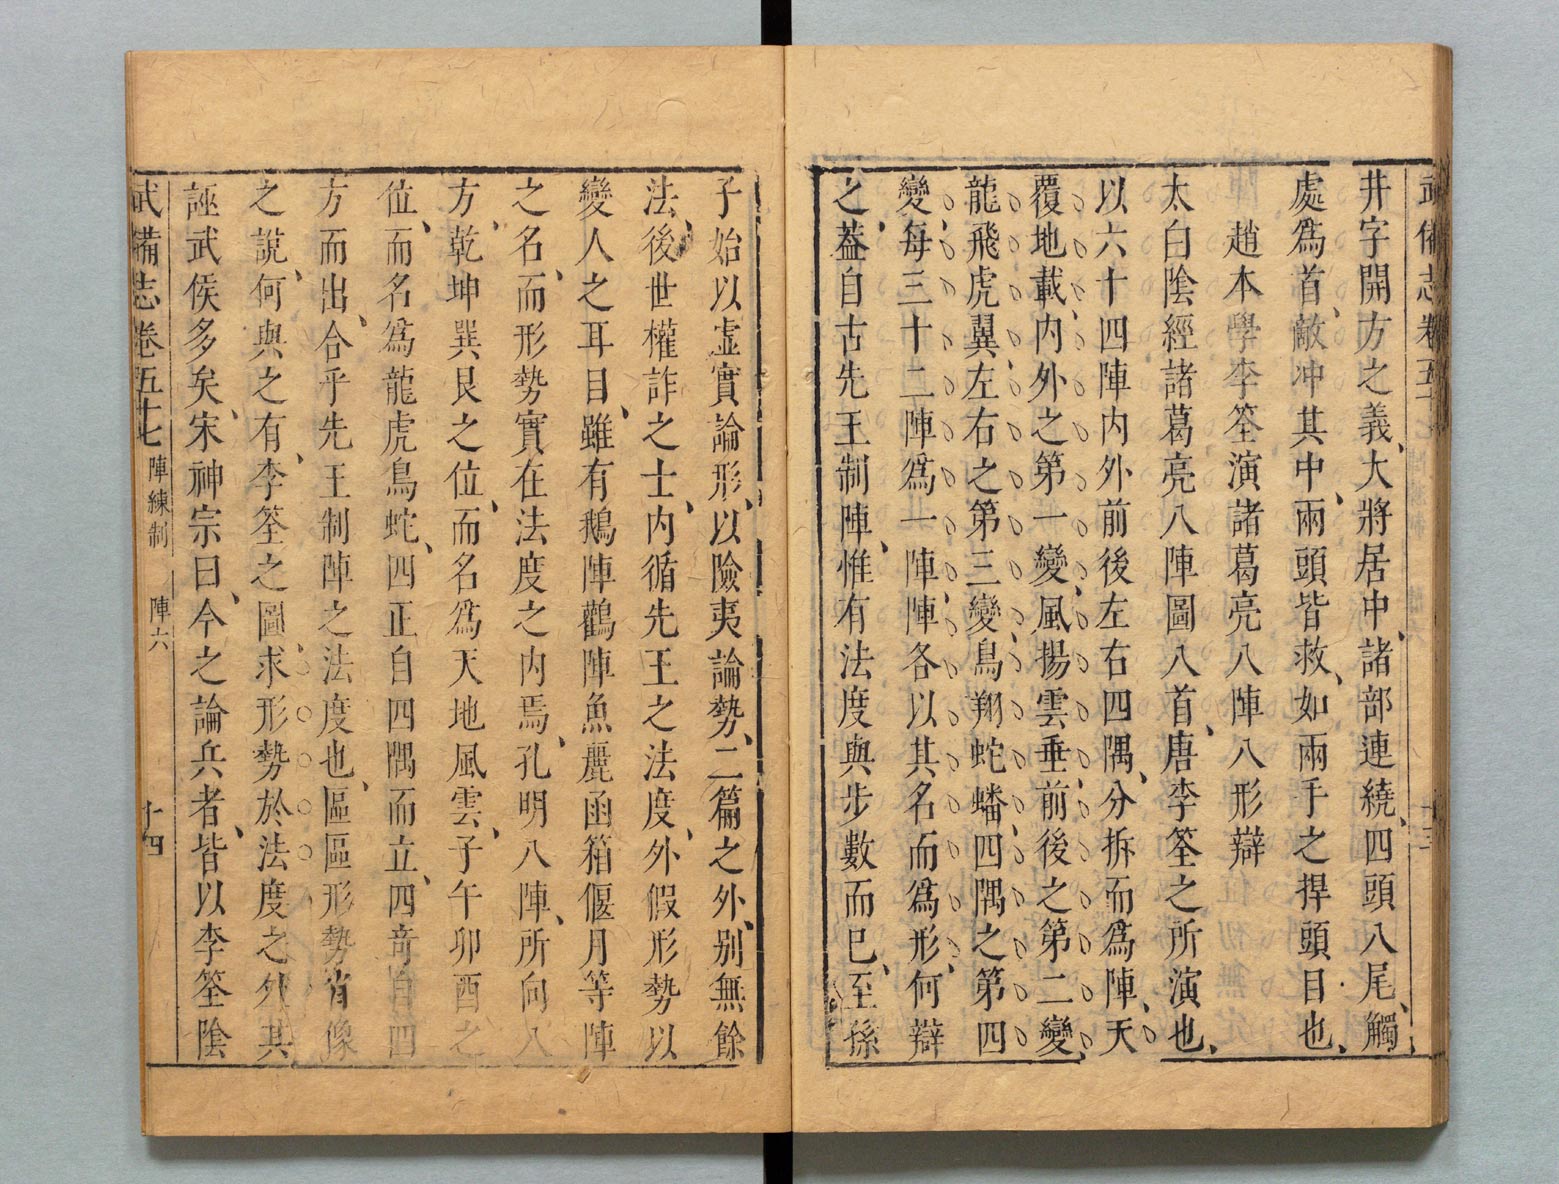 武備志卷五十七
井字開方之義、大將居中、諸部連繞、四頭八尾、觸
處爲首、敵冲其中、兩頭皆救、如兩手之捍頭目也、
趙本學李筌演諸葛亮八陣八形辯
太白陰經諸葛亮八陣圖八首、唐李筌之所演也、
以六十四陣内外前後左右四隅、分拆而爲陣、天
覆地載、内外之第一變、風揚雲垂、前後之第二變、
龍飛虎翼、左右之第三變、鳥翔蛇蟠、四隅之第四
變、每三十二陣爲一陣、陣各以其名而爲形、何辯
之、葢自古先王制陣、惟有法度與步數而已、至孫
子始以虛實論形、以險夷論勢、二篇之外、别無餘
法、後世權詐之士、内循先王之法度、外假形勢以
變人之耳目、雖有鵝陣鸛陣魚麗函箱偃月等陣
之名、而形勢實在法度之内焉、孔明八陣、所向八
方、乾坤巽艮之位、而名爲天地風雲、子午卯酉之
位、而名爲龍虎鳥蛇、四正自四隅而立、四竒自四
方而出、合乎先王制陣之法度也、區區形勢肖像
之説、何與之有、李筌之圖、求形勢於法度之外、其
誣武侯多矣、宋神宗曰、今之論兵者、皆以李筌陰
武備志卷五十七 陣練制 陣六 十四